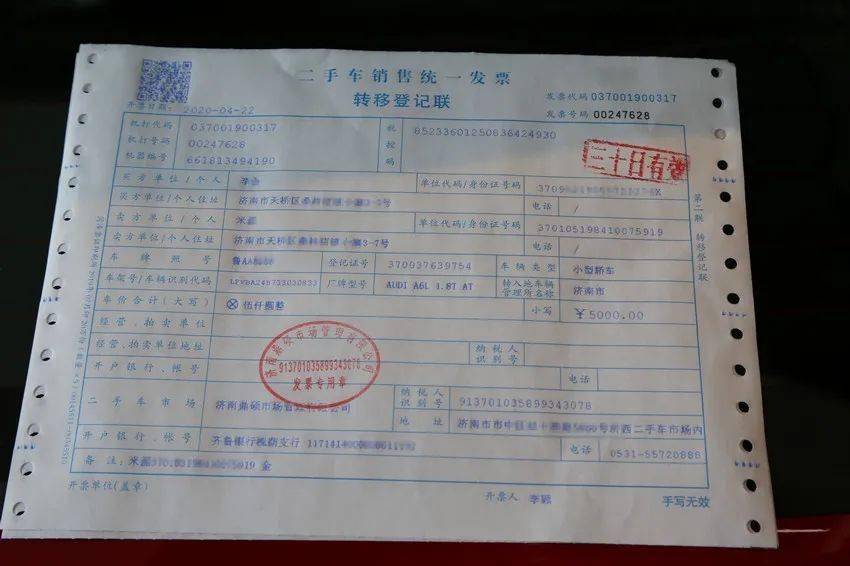 二手车销售统一发票
转移登记联
发票代码 037001900317
发票号码 00247628
开票日期: 2020-04-22
机打代码 037001900317
机打号码 00247628
机器编号 661813494190
税控码 85233601250836424930
三十日有效
买方单位/个人 单位代码/身份证号码
买方单位/个人住址 济南市天桥区 3-7号 电话 /
卖方单位/个人 米 单位代码/身份证号码 370105198410075919
卖方单位/个人住址 济南市天桥区 3-7号 电话 /
车牌照号 鲁A 登记证号 370037639754 车辆类型 小型轿车
车架号/车辆识别代码 厂牌型号 AUDI A6L 1.8T AT 转入地车辆管理所名称 济南市
车价合计(大写) ⊗ 伍仟圆整 小写 ¥5000.00
经营、拍卖单位
经营、拍卖单位地址 纳税人识别号
开户银行、帐号 电话
二手车市场 济南鼎硕市场管理有限公司 纳税人识别号 913701035899343078
地址 济南市市中区 二手车市场内
开户银行、帐号 齐鲁银行 支行 电话 0531-55720888
备注:
济南鼎硕市场管理有限公司
913701035899343078
发票专用章
开票单位(盖章) 开票人 李颖 手写无效
第二联 转移登记联